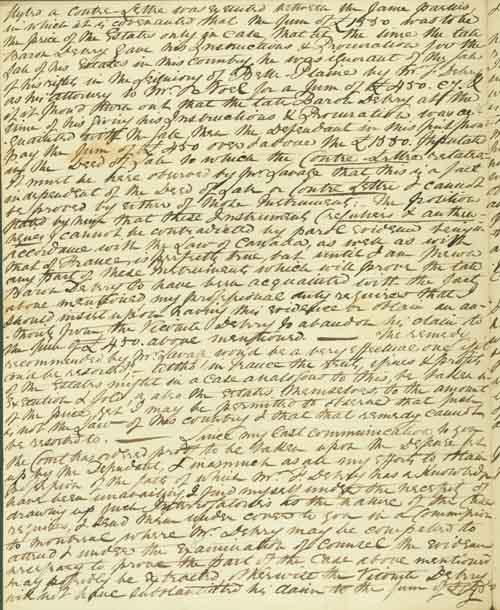 styled a Contre-Lettre was executed between the same parties,
in which it is covenanted that the sum of £1350 was to be
the price of the Estates only in case that at the time the late
Baron Debry gave his Instructions & Procuration for the
sale of his Estates in this country he was ignorant of the sale
of his right in the Seigniory of Belle-Plaine by Mr. Debry
as his attorney to Mr. Noel for a sum of £450. cy. &
if it should turn out that the late Baron Debry at the
time of his giving his Instructions & Procuration was ac-
quainted with the sale, then the Defendant in this suit should
pay the sum of £450 over & above the £1350 stipulated
in the Deed of Sale to which the Contre-Lettre relates.
It must be here observed by Mr. Savage that this is a fact
independent of the Deed of Sale or Contre Lettre & cannot
be proved by either of those Instruments. The position
stated by him that these Instruments (reguliers & authen-
tiques) cannot be contradicted by parole evidence being in
accordance with the Law of Canada, as well as with
that of France is perfectly true but until I am shewn
any part of these Instruments which will prove the late
Baron Debry to have been acquainted with the fact
above mentioned my professional duty requires that I
should insist upon having this evidence or obtain an au-
thority from the Vicomte Debry to abandon his claim to
the sum of £450 above mentioned. — The remedy
recommended by Mr. Savage would be a very effectual one if it
could be resorted to. Altho' in France the Fruits, issues & profits
of the Estates might in a case analogous to this, be taken in
Execution & sold as also the Estates themselves to the amount
of the price, yet I may be permitted to observe that such
is not the Law of this country & that that remedy cannot
be resorted to. — Since my last communication to you
the Court has ordered proof to be taken upon the Defense set
up by the Defendant, & inasmuch as all my efforts to obtain
admission of the facts of which Mr. Debry has a knowledge
have been unavailing, I find myself under the necessity of
drawing up such Interrogatories as the nature of the case
requires, & send them under cover to you in a Commission
to Montreal where Mr. Debry may be compelled to
attend & under the examination of Counsel the evidence
necessary to prove the part of the case above mentioned
may possibly be extracted, otherwise the Vicomte Debry
will not have substantiated his claim to the sum of £450